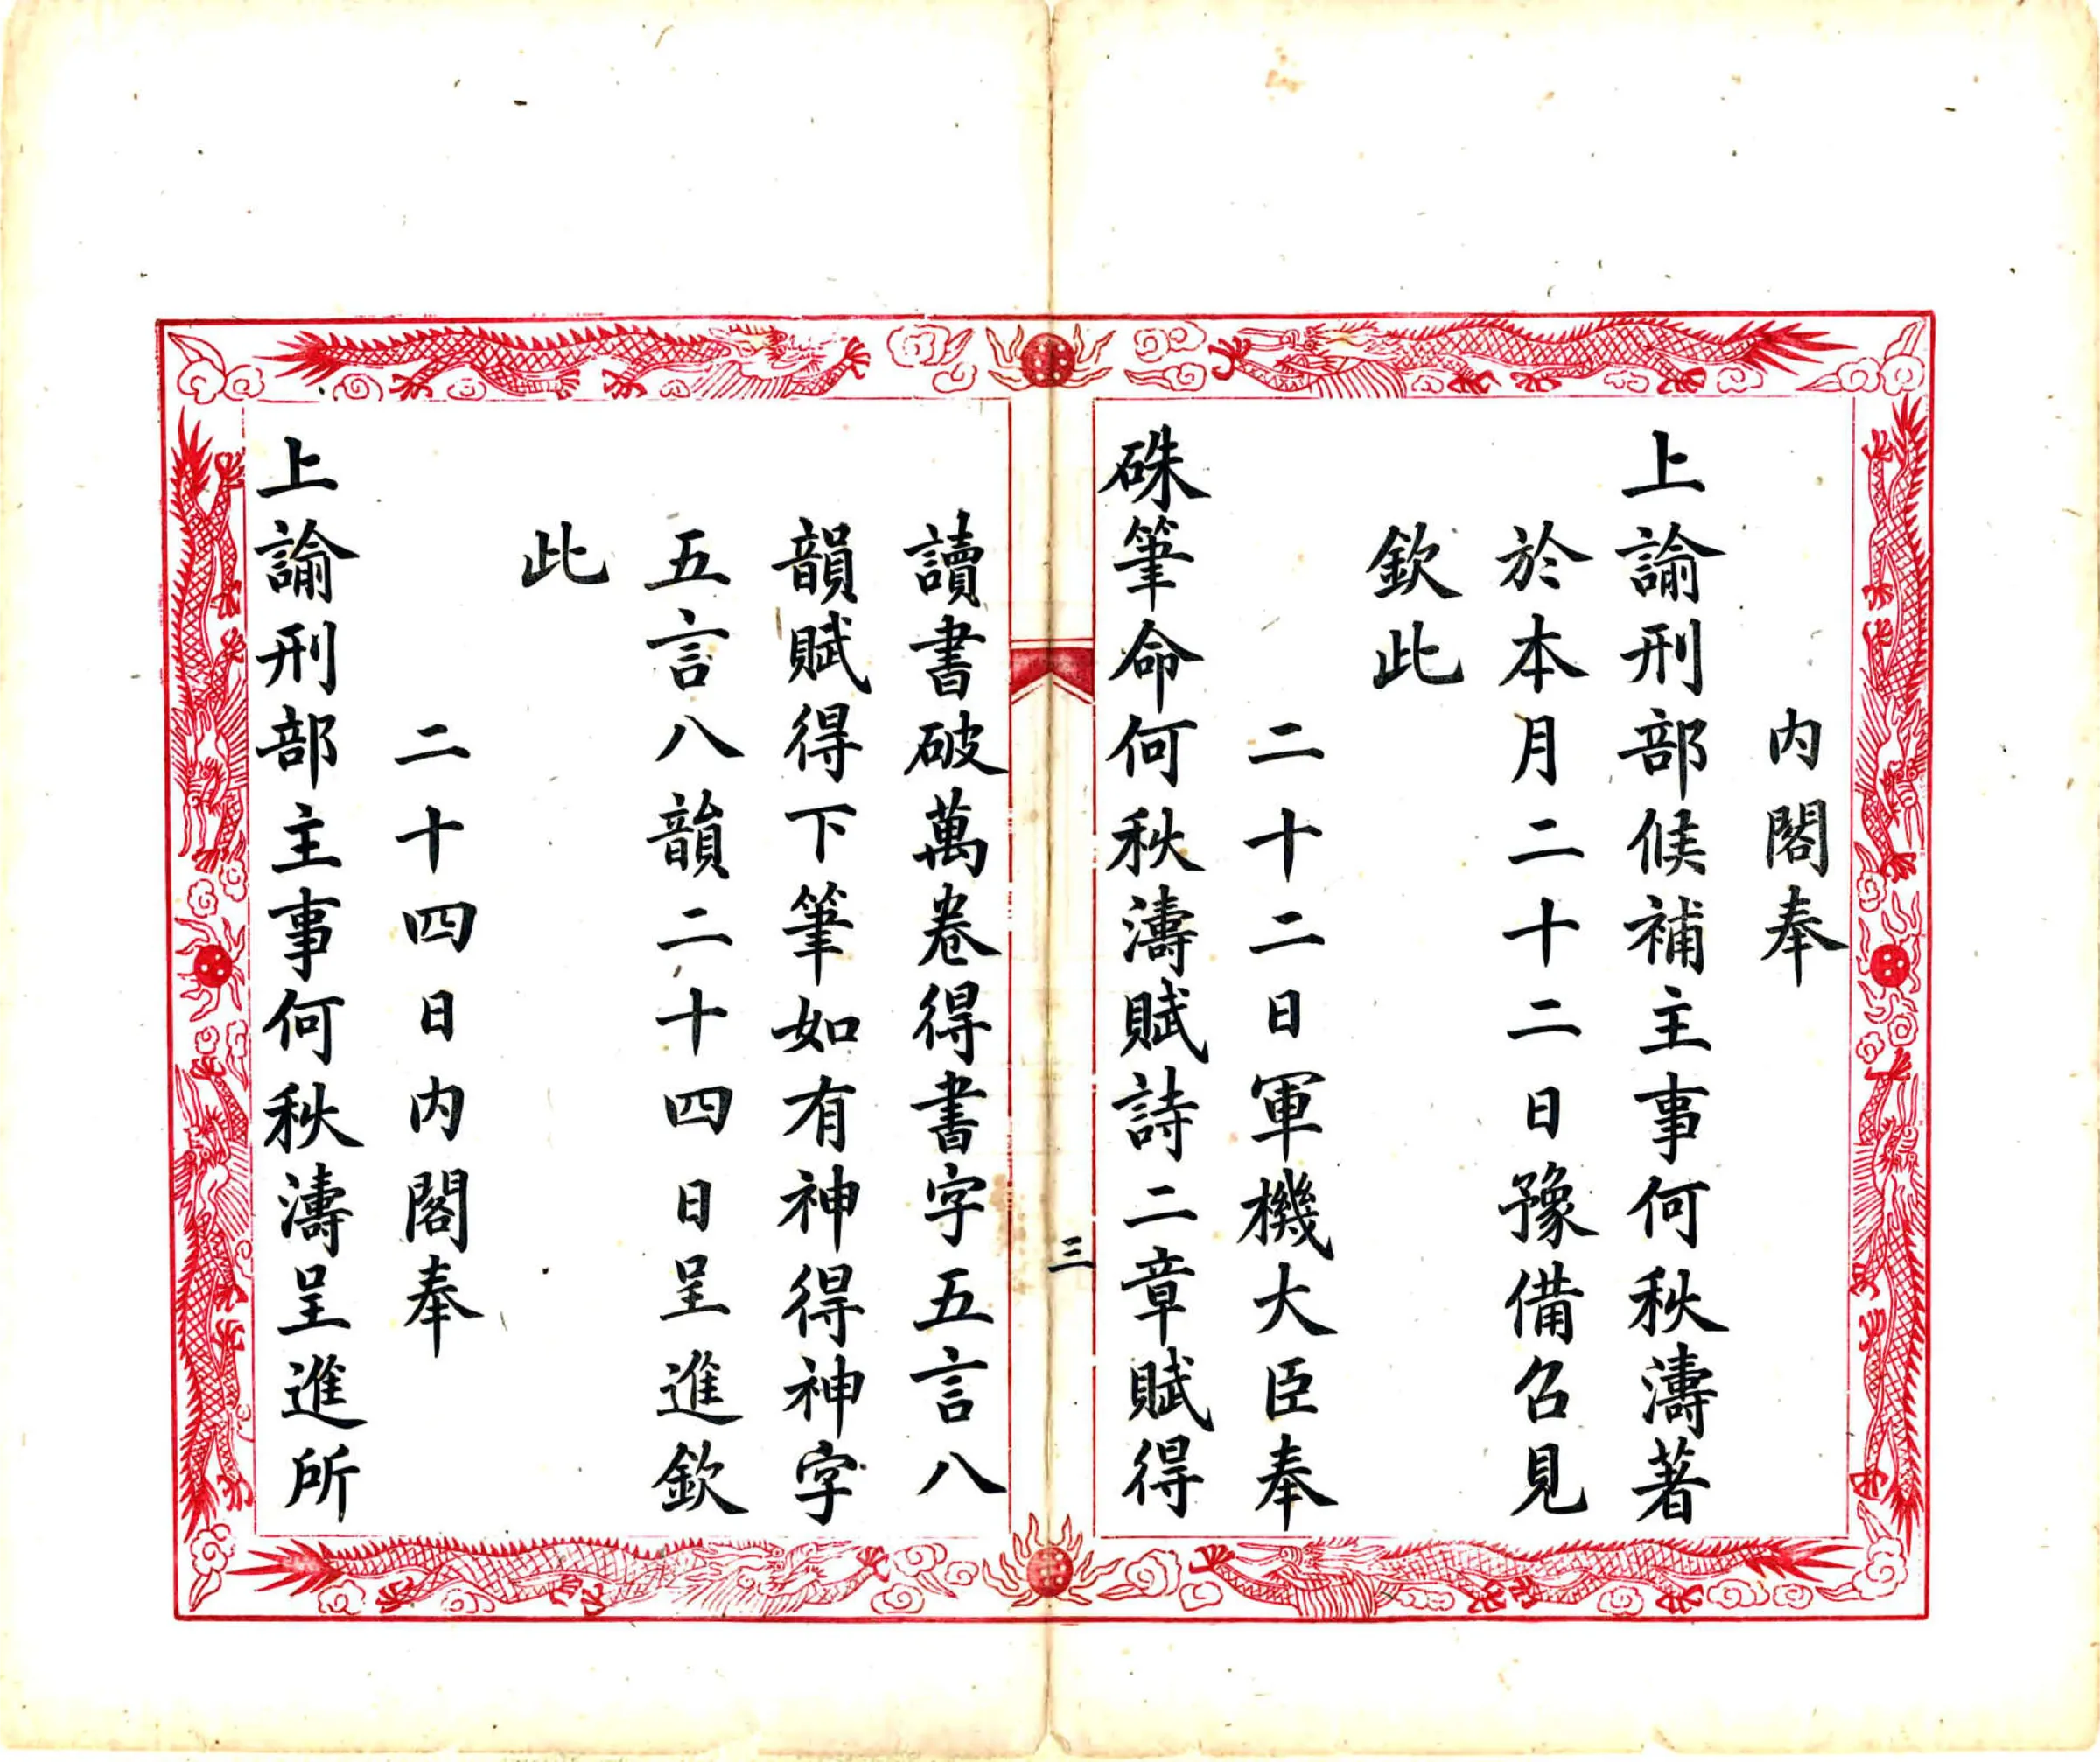 内閣奉
上諭刑部候補主事何秋濤著
於本月二十二日豫備召見
欽此
二十二日軍機大臣奉
硃筆命何秋濤賦詩二章賦得
三
讀書破萬卷得書字五言八
韻賦得下筆如有神得神字
五言八韻二十四日呈進欽
此
二十四日内閣奉
上諭刑部主事何秋濤呈進所